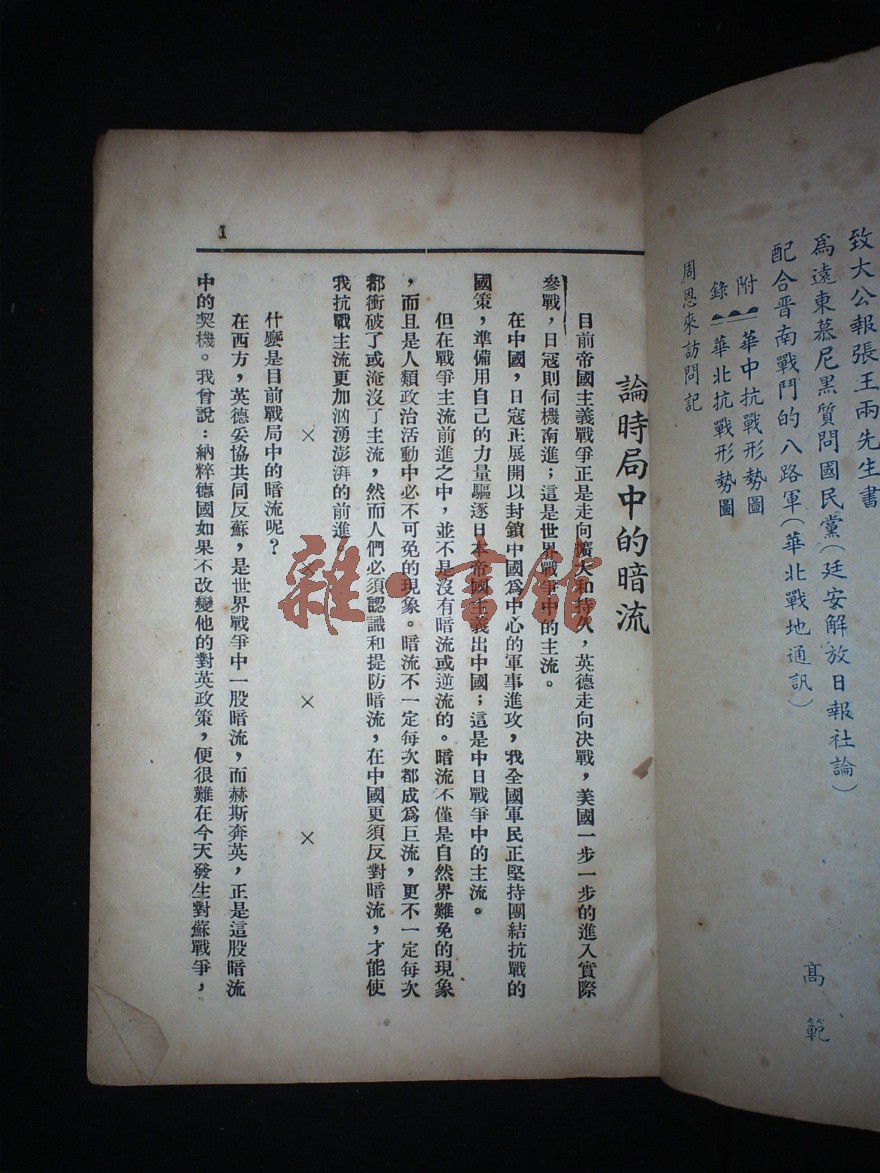 致大公報張王兩先生書
爲遠東慕尼黑質問國民黨(延安解放日報社論)
配合晋南戰鬥的八路軍(華北戰地通訊)
附錄
華中抗戰形勢圖
華北抗戰形勢圖
周恩來訪問記
高範
論時局中的暗流
目前帝國主義戰爭正是走向擴大和持久,英德走向决戰,美國一步一步的進入實際
參戰,日寇則伺機南進;這是世界戰爭中的主流。
在中國,日寇正展開以封鎖中國爲中心的軍事進攻,我全國軍民正堅持團結抗戰的
國策,準備用自己的力量驅逐日本帝國主義出中國;這是中日戰爭中的主流。
但在戰爭主流前進之中,並不是沒有暗流或逆流的。暗流不僅是自然界難免的現象
,而且是人類政治活動中必不可免的現象。暗流不一定每次都成爲巨流,更不一定每次
都衝破了或淹沒了主流,然而人們必須認識和提防暗流,在中國更須反對暗流,才能使
我抗戰主流更加洶湧澎湃的前進。
× × ×
什麼是目前戰局中的暗流呢?
在西方,英德妥協共同反蘇,是世界戰爭中一股暗流,而赫斯奔英,正是這股暗流
中的契機。我曾說:納粹德國如果不改變他的對英政策,便很難在今天發生對蘇戰爭,
1
雜書館